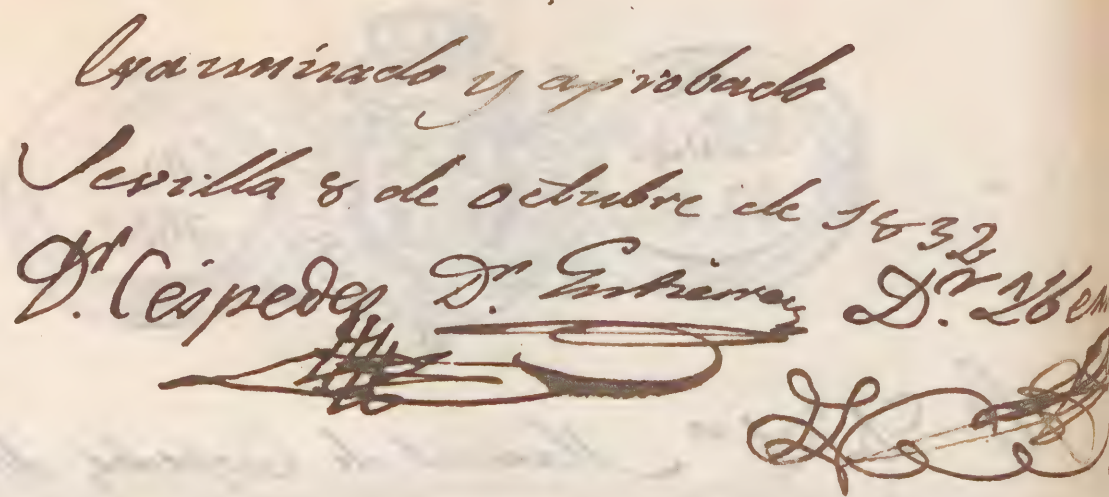 Examinado y aprobado
Sevilla 8 de octubre de 1832
Dr. Céspedes Dr. Gutierrez Dr.